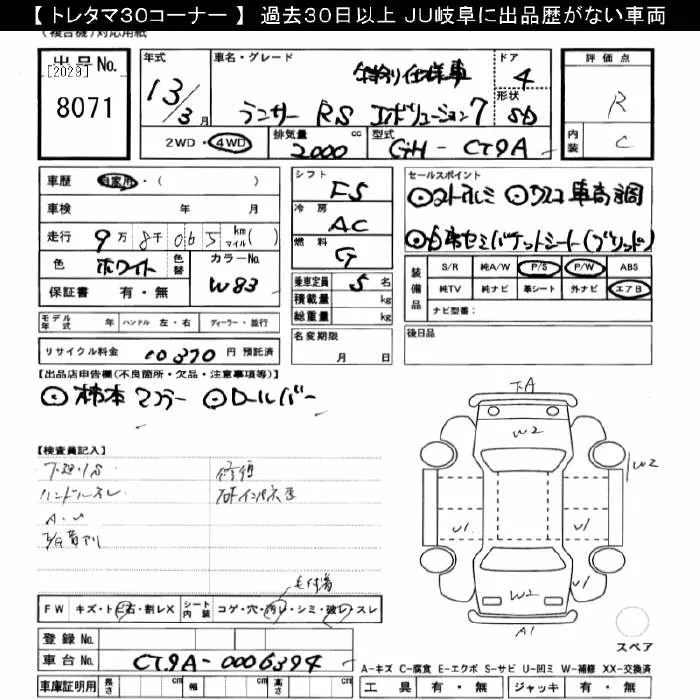 【 トレタマ30コーナー 】 過去30日以上 JU岐阜に出品歴がない車両
(複合機)対応用紙
出品 No. [2029]
8071
年式 車名・グレード ドア 評価点
13/3月 特別仕様車 4 R
ランサー RS エボリューション7 形状 SD
2WD・4WD 排気量 2000 cc 型式 GH-CT9A 内装 C
車歴 自家用・( )
車検 年 月
走行 9万 8千 065 km マイル( )
色 ホワイト 色替 カラーNo. W83
保証書 有・無
シフト F5
冷房 AC
燃料 G
乗車定員 5 名
積載量 kg
総重量 kg
名変期限 月 日
セールスポイント
装備品 S/R 純A/W P/S P/W ABS
純TV 純ナビ 革シート 外ナビ エアB
ナビ型番:
後日品
モデル年式 年 ハンドル 左・右 ディーラー・並行
リサイクル料金 10370 円 預託済
【出品店申告欄(不良箇所・欠品・注意事項等)】
柿本マフラー ロールバー
【検査員記入】
ハンドルスレ
A.U
FW キズ・ト ビ石・割レX シート内装 コゲ・穴・汚レ・シミ・破レ・スレ
登録 No.
車台 No. CT9A-0006394
車庫証明用 長さ cm 幅 cm 高さ cm
下A
W2
W2
U1
U1
U1
W2
A1
スペア
A-キズ C-腐食 E-エクボ S-サビ U-凹ミ W-補修 XX-交換済
工具 有・無 ジャッキ 有・無